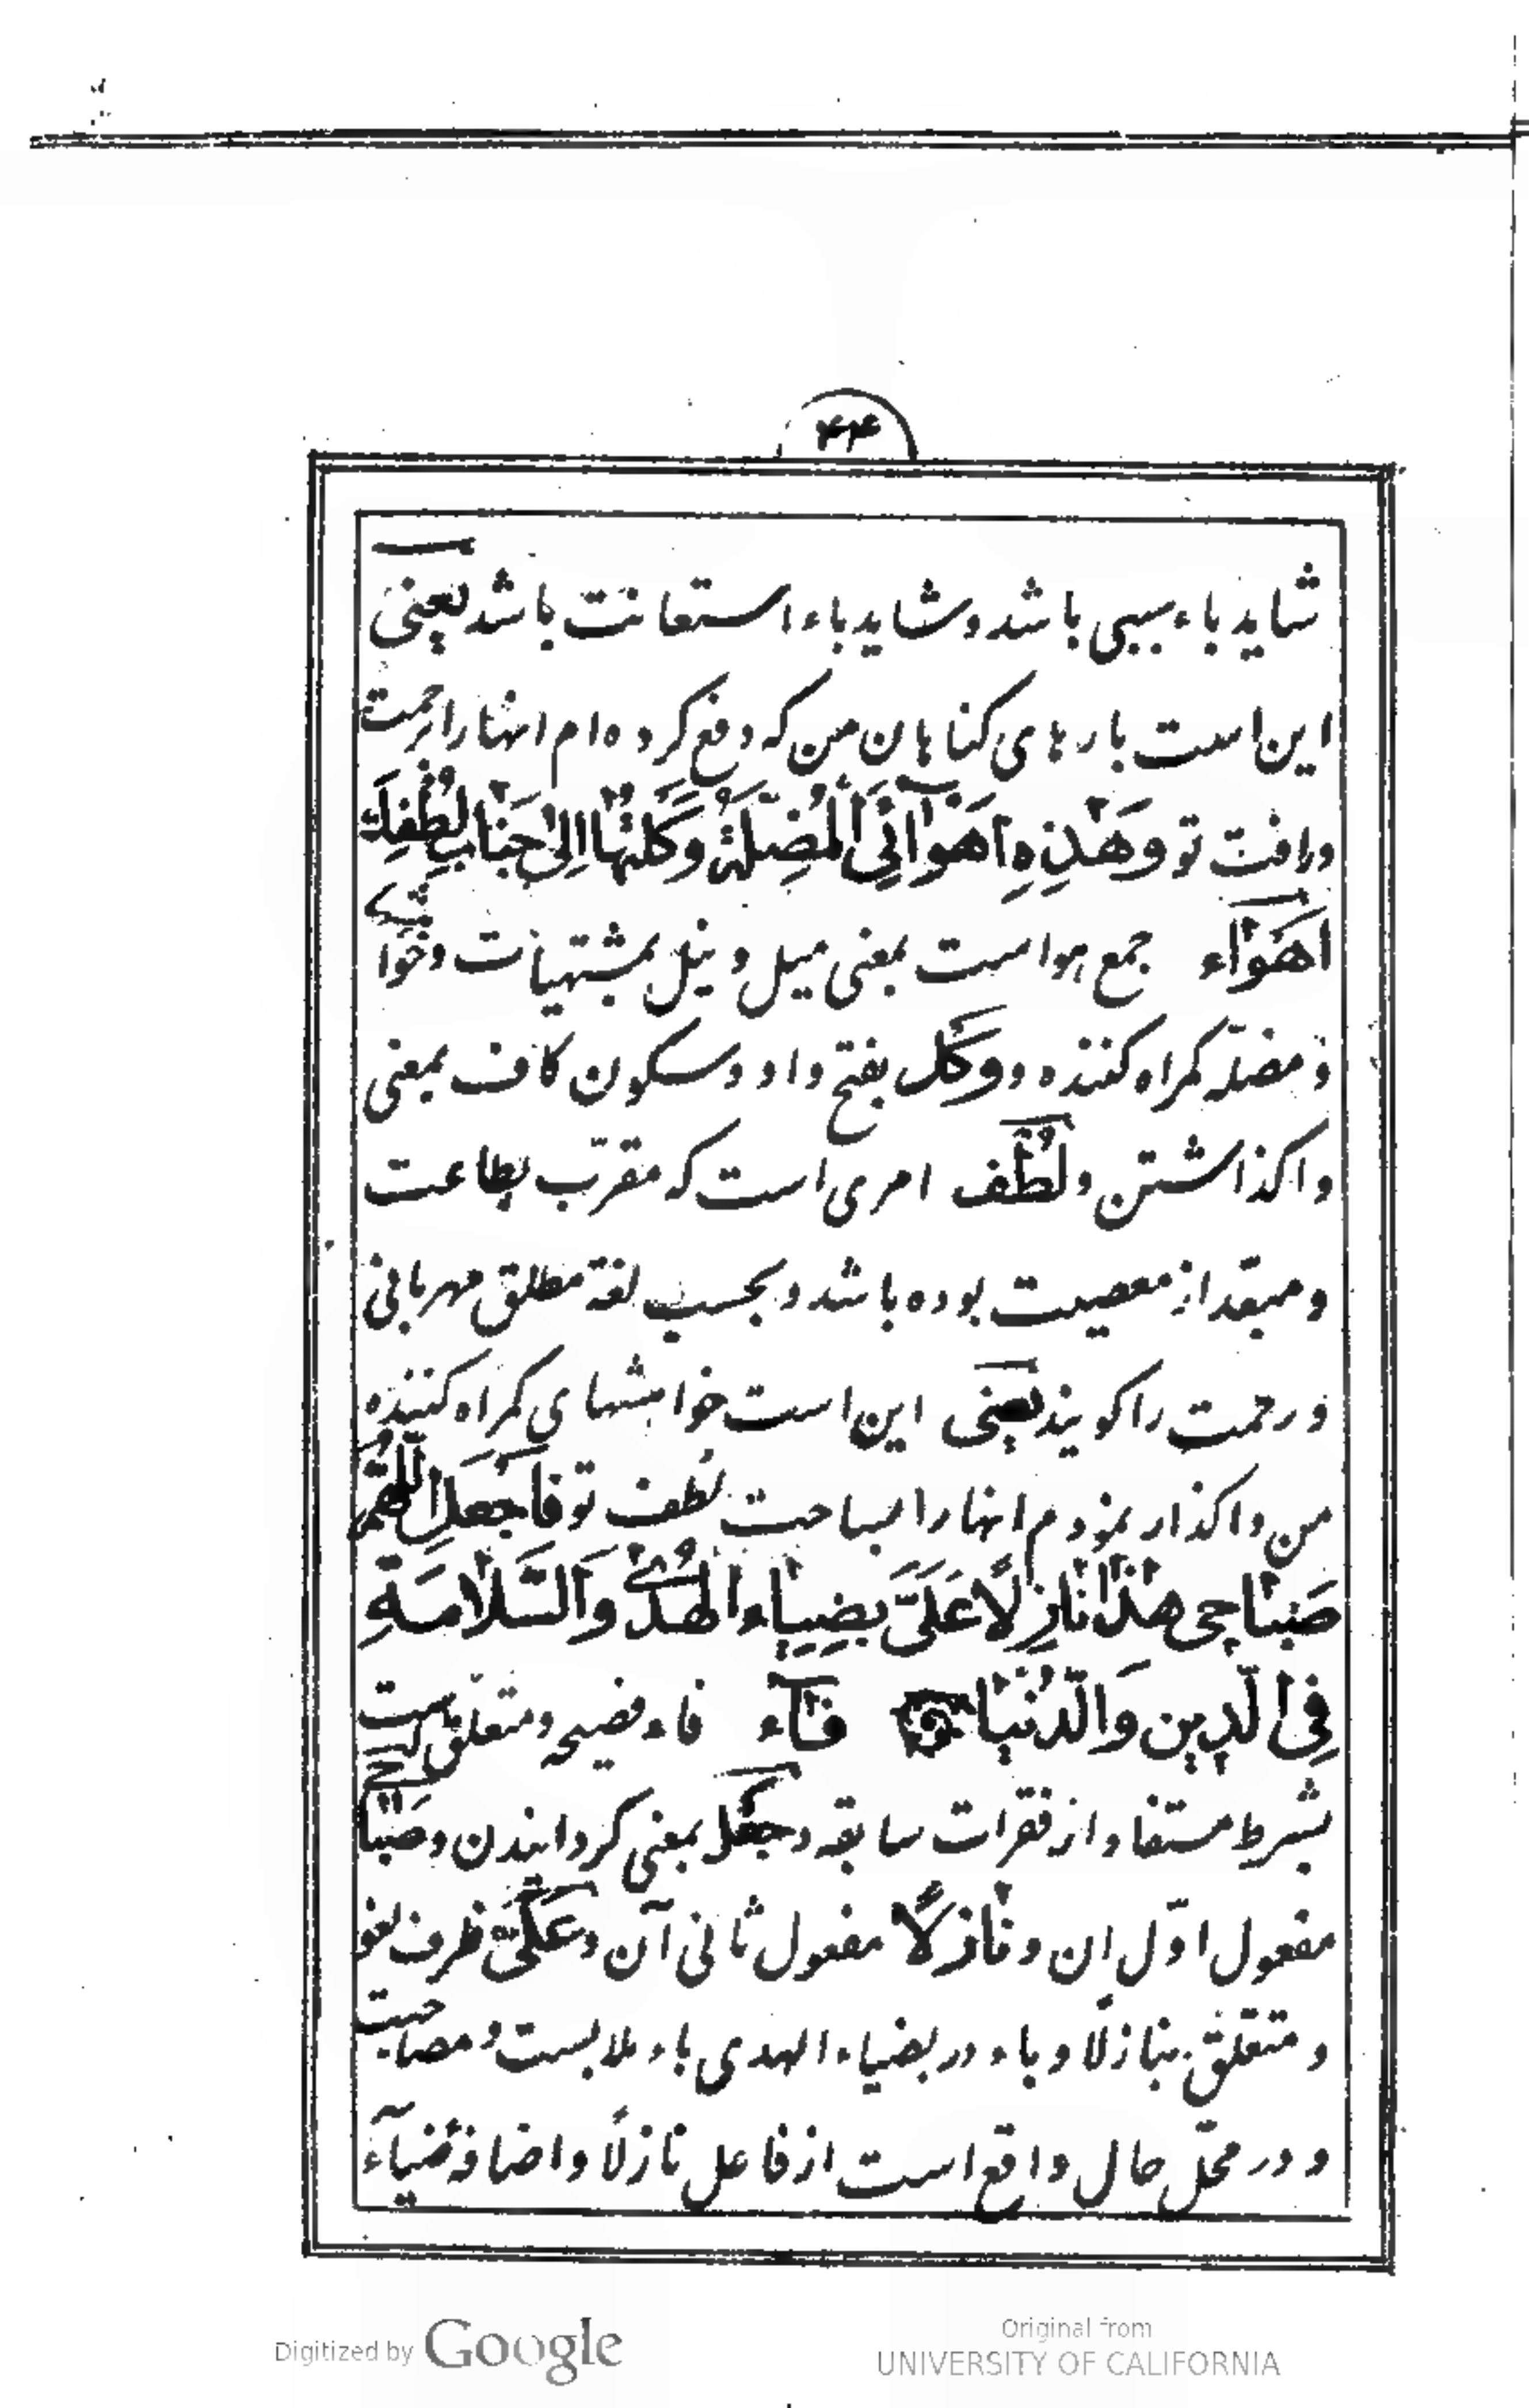 ۴۴
شاید باء سببی باشد و شاید باء استعانت باشد یعنی
این است بارهای کناهان من که دفع کرده‌ام انها را برحمت
و رافت تو وَهٰذِهِ اَهْوٰآئِیَ الْمُضِلَّةُ وَکَلْتُهٰا اِلیٰ جَنٰابِ لُطْفِكَ
اَهْوٰاء جمع هوا است بمعنی میل و نیل بمشتهیات و خواهش
و مضلّه کمراه کننده و وَکْل بفتح واو و سکون کاف بمعنی
واکذاشتن و لُطْف امری است که مقرّب بطاعت
و مبعّد از معصیت بوده باشد و بحسب لغة مطلق مهربانی
و رحمت را کویند یعنی این است خواهشهای کمراه کننده
من واکذار نمودم انها را بساحت لطف تو فَاجْعَلِ اللّٰهُمَّ
صَبٰاحی هٰذٰا نٰازِلًا عَلَیَّ بِضِیٰاءِ الْهُدیٰ وَالسَّلٰامَةِ
فِی الدّینِ وَالدُّنْیٰا فٰآء فاء فصیحه و متعلّق است
بشرط مستفاد از فقرات سابقه و جَعْل بمعنی کردانیدن و صَبٰاحی
مفعول اوّل ان و نٰازِلًا مفعول ثانی آن و عَلَیَّ ظرف لغو
و متعلّق بنازلًا و باء در بضیاء الهدی باء ملابست و مصاحبت
و در محلّ حال واقع است از فاعل نازلًا و اضافهٔ ضیآء
Digitized by Google
Original from
UNIVERSITY OF CALIFORNIA